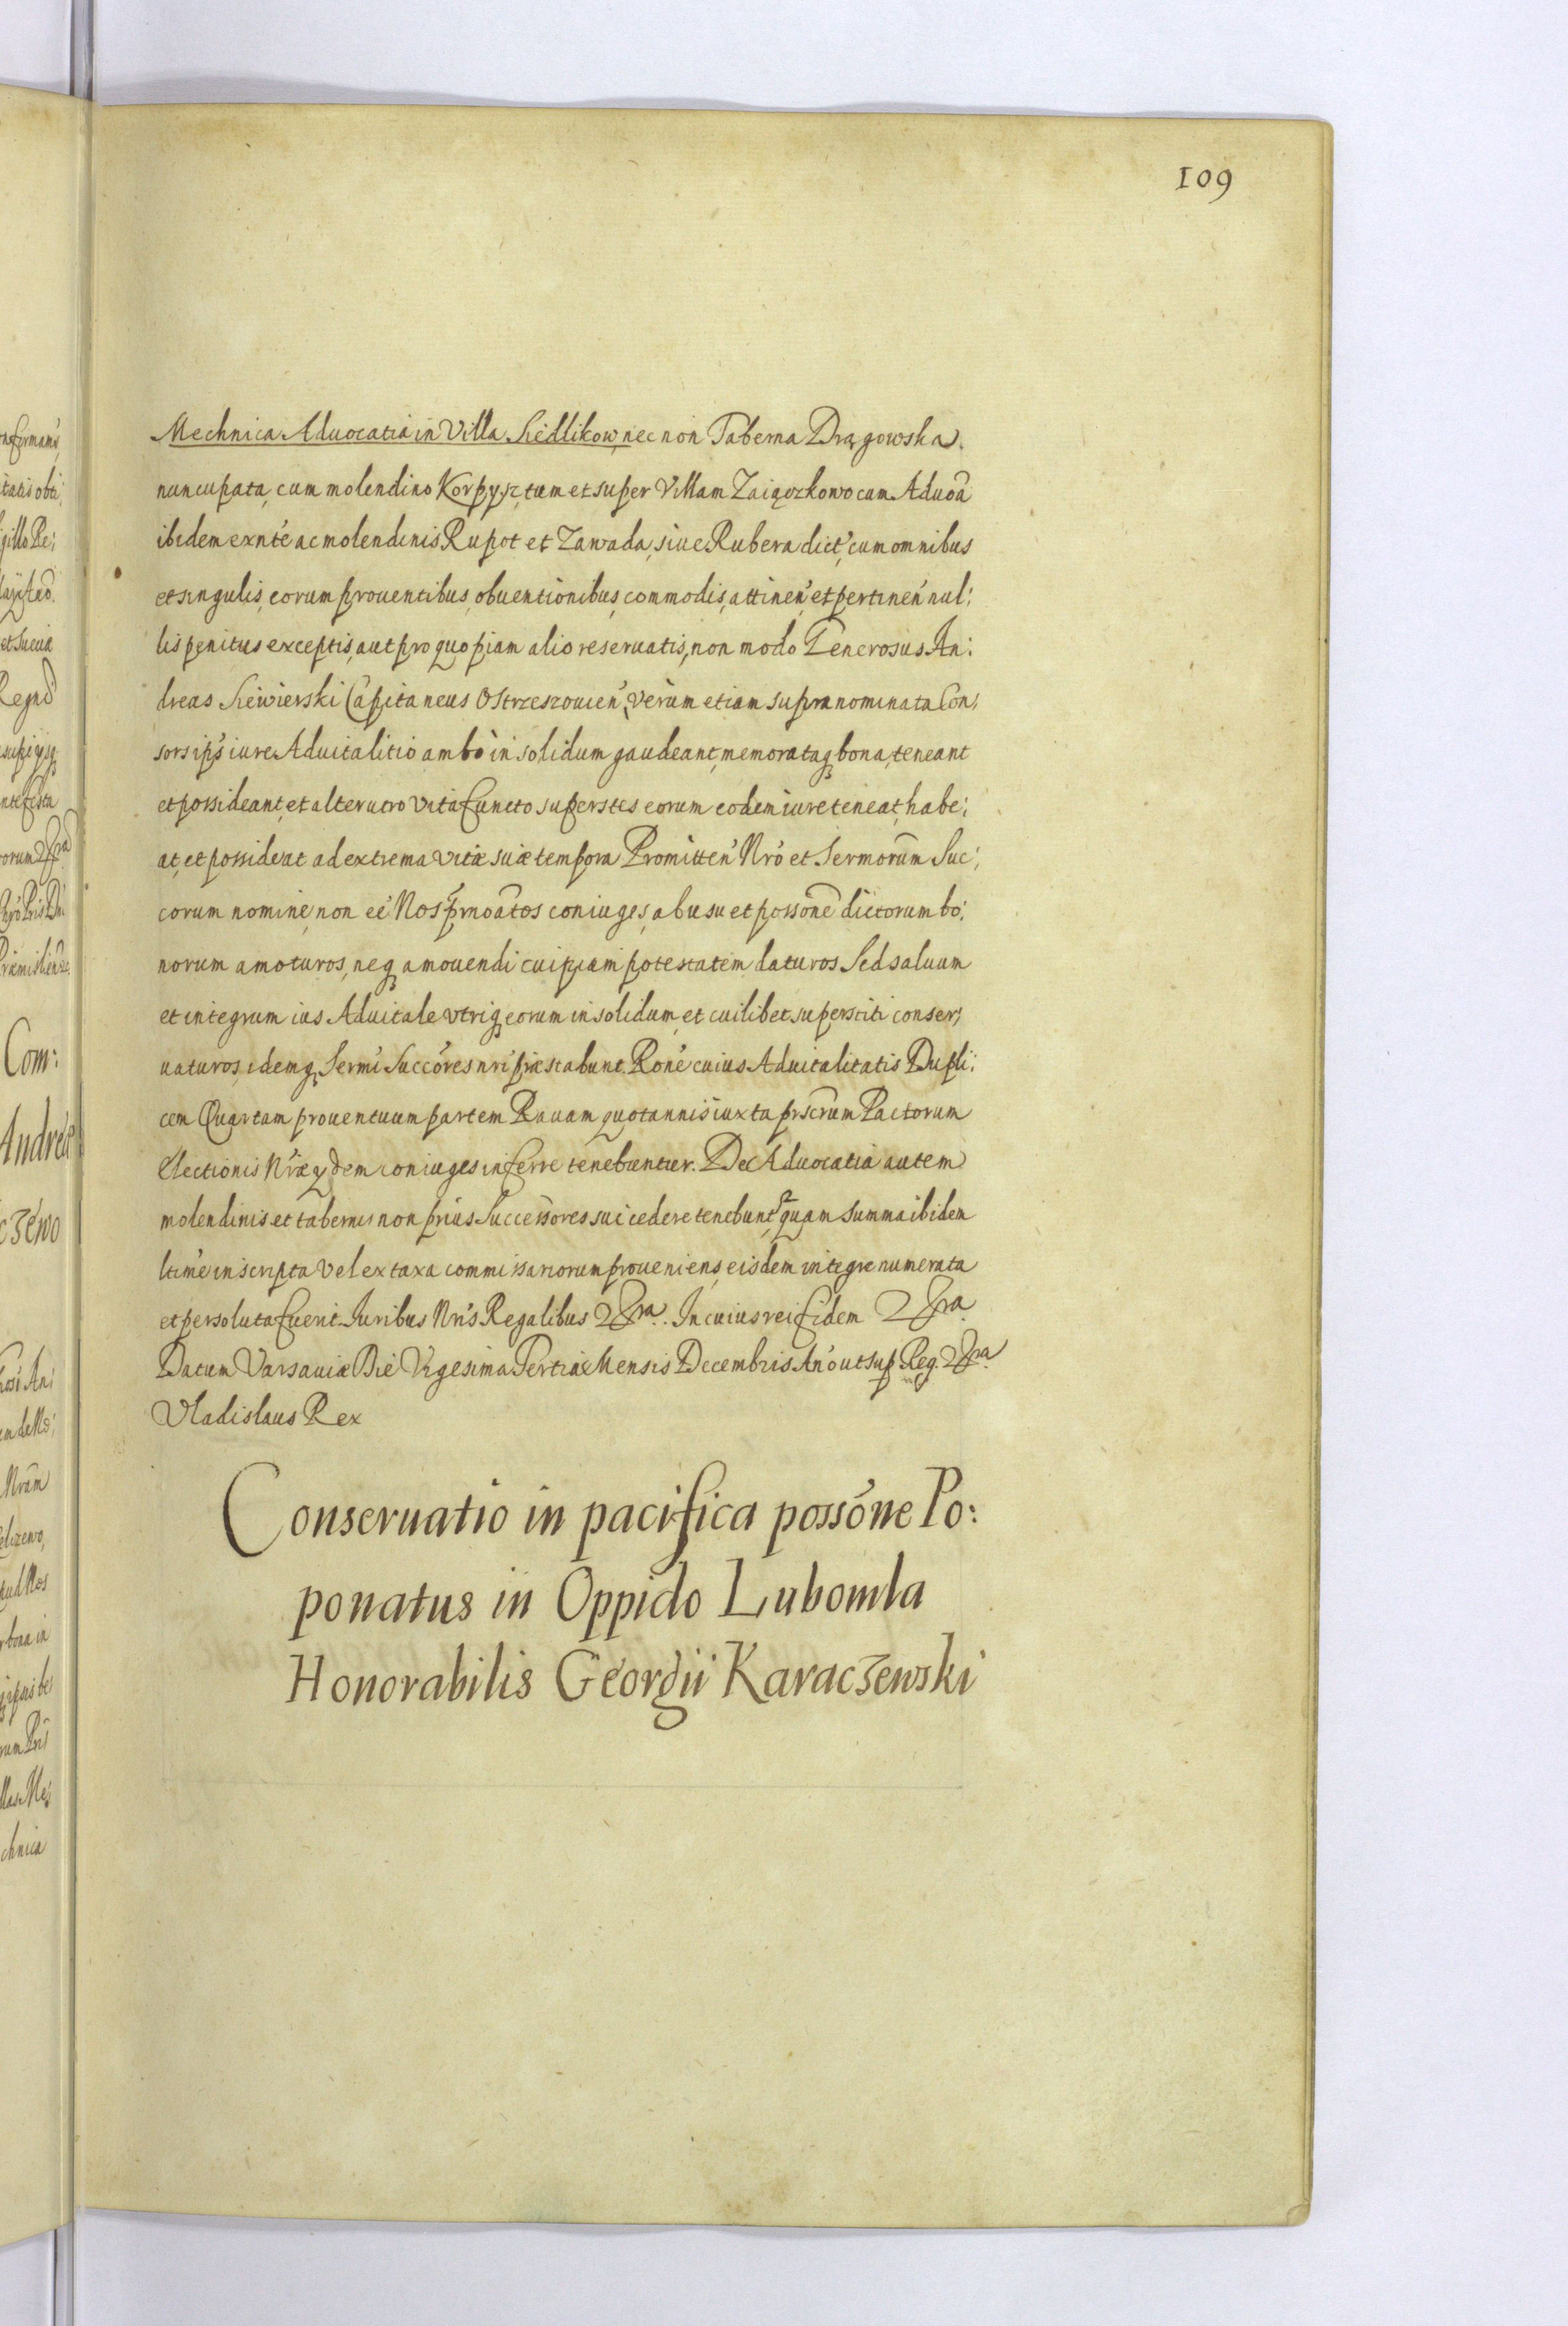 109
Mechnica Aduocatia in Villa Siedlikow, nec non Taberna Drągowska
nuncupata, cum molendino Korpysz, tum et super Villam Zaiączkowo cum Aduoã
ibidem exñte ac molendinis Rupot et Zawada, siue Rubera dict', cum omnibus
et singulis, eorum prouentibus, obuentionibus, commodis, attinen' et pertinen' nul:
lis penitus exceptis, aut pro quopiam alio reseruatis, non modo Generosus An:
dreas Siewierski Capitaneus Ostrzeszouien', verum etiam supranominata Con:
sors ips' iure Aduitalitio ambo in solidum gaudeant, memorataq bona, teneant
et possideant, et alterutro vita functo superstes eorum eodem iure teneat, habe:
at, et possideat ad extrema vitæ suæ tempora Promitten' Nró et Sermorum Suc:
corum nomine, non eé Nos p̃rnoãtos coniuges, ab usu et possone dictorum bo:
norum amoturos, neq amouendi cuipiam potestatem daturos Sed saluum
et integrum ius Aduitale vtriq eorum in solidum, et cuilibet superstiti conser:
uaturos, idemq Sermi Succóres nri præstabunt. Roné cuius Aduitalitatis Dupli:
cem Quartam prouentuum partem Rauam quotannis iuxta prscrũm Pactorum
Electionis Nræ ydem coniuges inferre tenebuntur. De Aduocatia autem
molendinis et tabernis non prius Successores sui cedere tenebunt, quam summa ibidem
ltime inscripta vel ex taxa commissariorum proueniens, eisdem integre numerata
et persoluta fuerit. Iuribus Nris Regalibus &ra. In cuius rei fidem &ra.
Datum Varsauiæ Die Vigesima Tertia Mensis Decembris Ano ut sup Reg. &ra
Vladislaus Rex
Conseruatio in pacifica possóne Po:
ponatus in Oppido Lubomla
Honorabilis Georgii Karaczewski